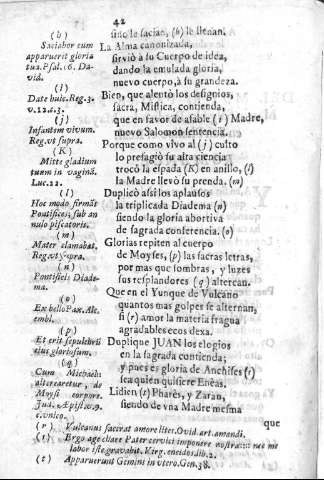 42
(h)
Saciabor cum
apparuerit gloria
tua. Psal. 16. Da-
vid.
(i)
Date huic. Reg. 3.
v. 12. c. 3.
(j)
Infantem vivum.
Reg. vt supra.
(K)
Mitte gladium
tuum in vaginã.
Luc. 22.
(l)
Hoc modo firmãt
Pontifices, sub an
nulo piscatoris.
(m)
Mater clamabat.
Reg. vt supra.
(n)
Pontificis Diade-
ma.
(o)
Ex bello Pax. Alc.
embl.
(p)
Et erit sepulchrũ
eius gloriosum.
(q)
Cum Michaele
altercaretur, de
Moysi corpore.
Jud. Æpist.
canonica.
sino le sacian, (h) le llenan.
La Alma canonizada,
sirviò a su Cuerpo de idea,
dando la emulada gloria,
nuevo cuerpo, à su grandeza.
Bien, que alentò los designios,
sacra, Mistica, contienda,
que en favor de afable (i) Madre,
nuevo Salomon sentencia.
Porque como vivo al (j) culto
lo presagiò su alta ciencia
trocò la espada (K) en anillo, (l)
la Madre llevò su prenda. (m)
Duplicò assi los aplausos
la triplicada Diadema (n)
siendo la gloria abortiva
de sagrada conferencia. (o)
Glorias repiten al cuerpo
de Moyses, (p) las sacras letras,
por mas que sombras, y luzes
sus resplandores (q) altercan.
Que en el Yunque de Vulcano
quantos mas golpes se alternan,
si (r) amor la materia fragua
agradables ecos dexa.
Duplique JUAN los elogios
en la sagrada contienda;
y pues es gloria de Anchises (s)
sea quien quisiere Enèas.
Lidien (t) Pharès, y Zaràn,
siendo de vna Madre mesma
que
(r) Vulcanus faciat amore liter. Ovid. art. amandi.
(s) Ergo age chare Pater cervici imponere nostræ: nec me
labor iste gravabit. Virg. eneidos lib. 2.
(t) Apparuerunt Gemini in vtero. Gen. 38.